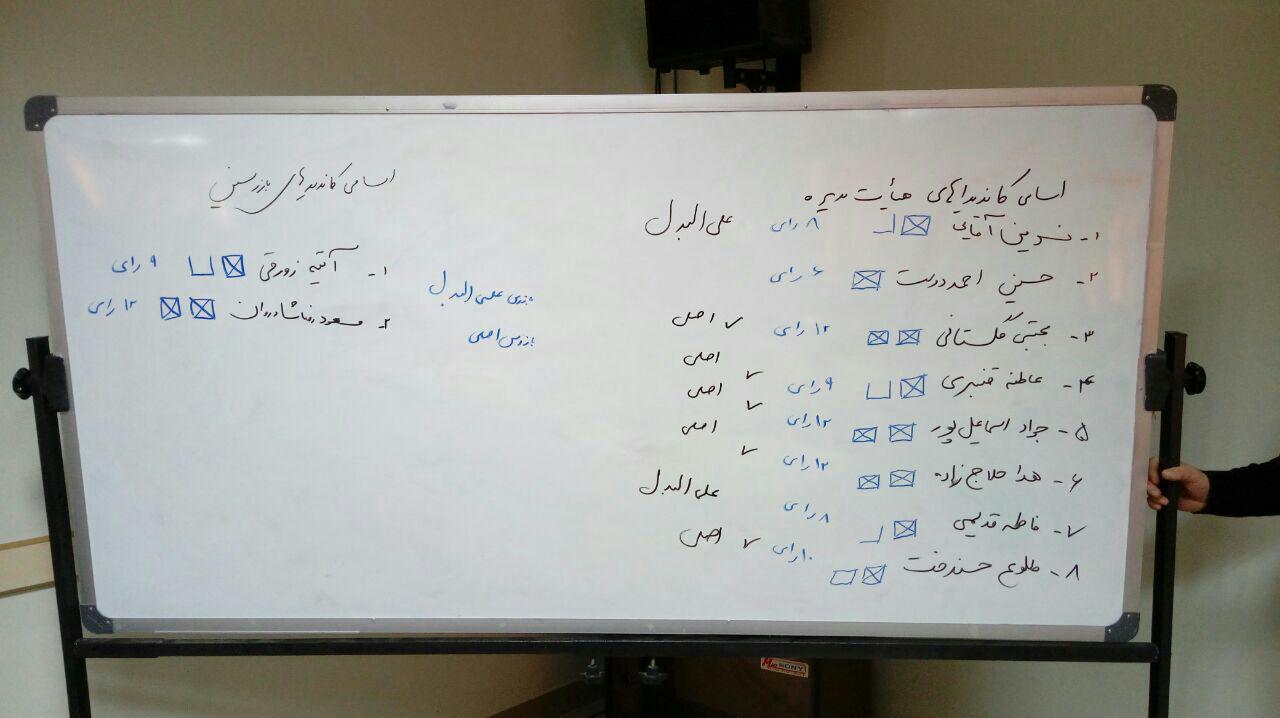 اسامی کاندیداهای هیأت مدیره
۱- نسرین آقایی ۸ رای علی البدل
۲- حسین احمد دوست ۶ رای
۳- مجتبی گلستانی ۱۲ رای ✓ اصلی
۴- عاطفه قنبری ۹ رای ✓ اصلی
۵- جواد اسماعیل پور ۱۲ رای ✓ اصلی
۶- هدا حلاج زاده ۱۲ رای ✓ اصلی
۷- فاطمه قدیمی ۸ رای علی البدل
۸- طلوع ۱۰ رای ✓ اصلی
اسامی کاندیدهای بازرسین
۱- آتیه زورقی ۹ رای بازرس علی البدل
۲- مسعود رضا شادروان ۱۲ رای بازرس اصلی
SONY